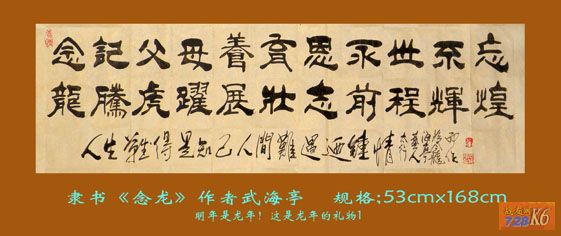 念記父母養育恩永世不忘
龍騰虎躍展壯志前程輝煌
人生難得是知己人間難遇情
隶书《念龙》作者武海亭 规格:53cmx168cm
明年是龙年！这是龙年的礼物1
728 K6